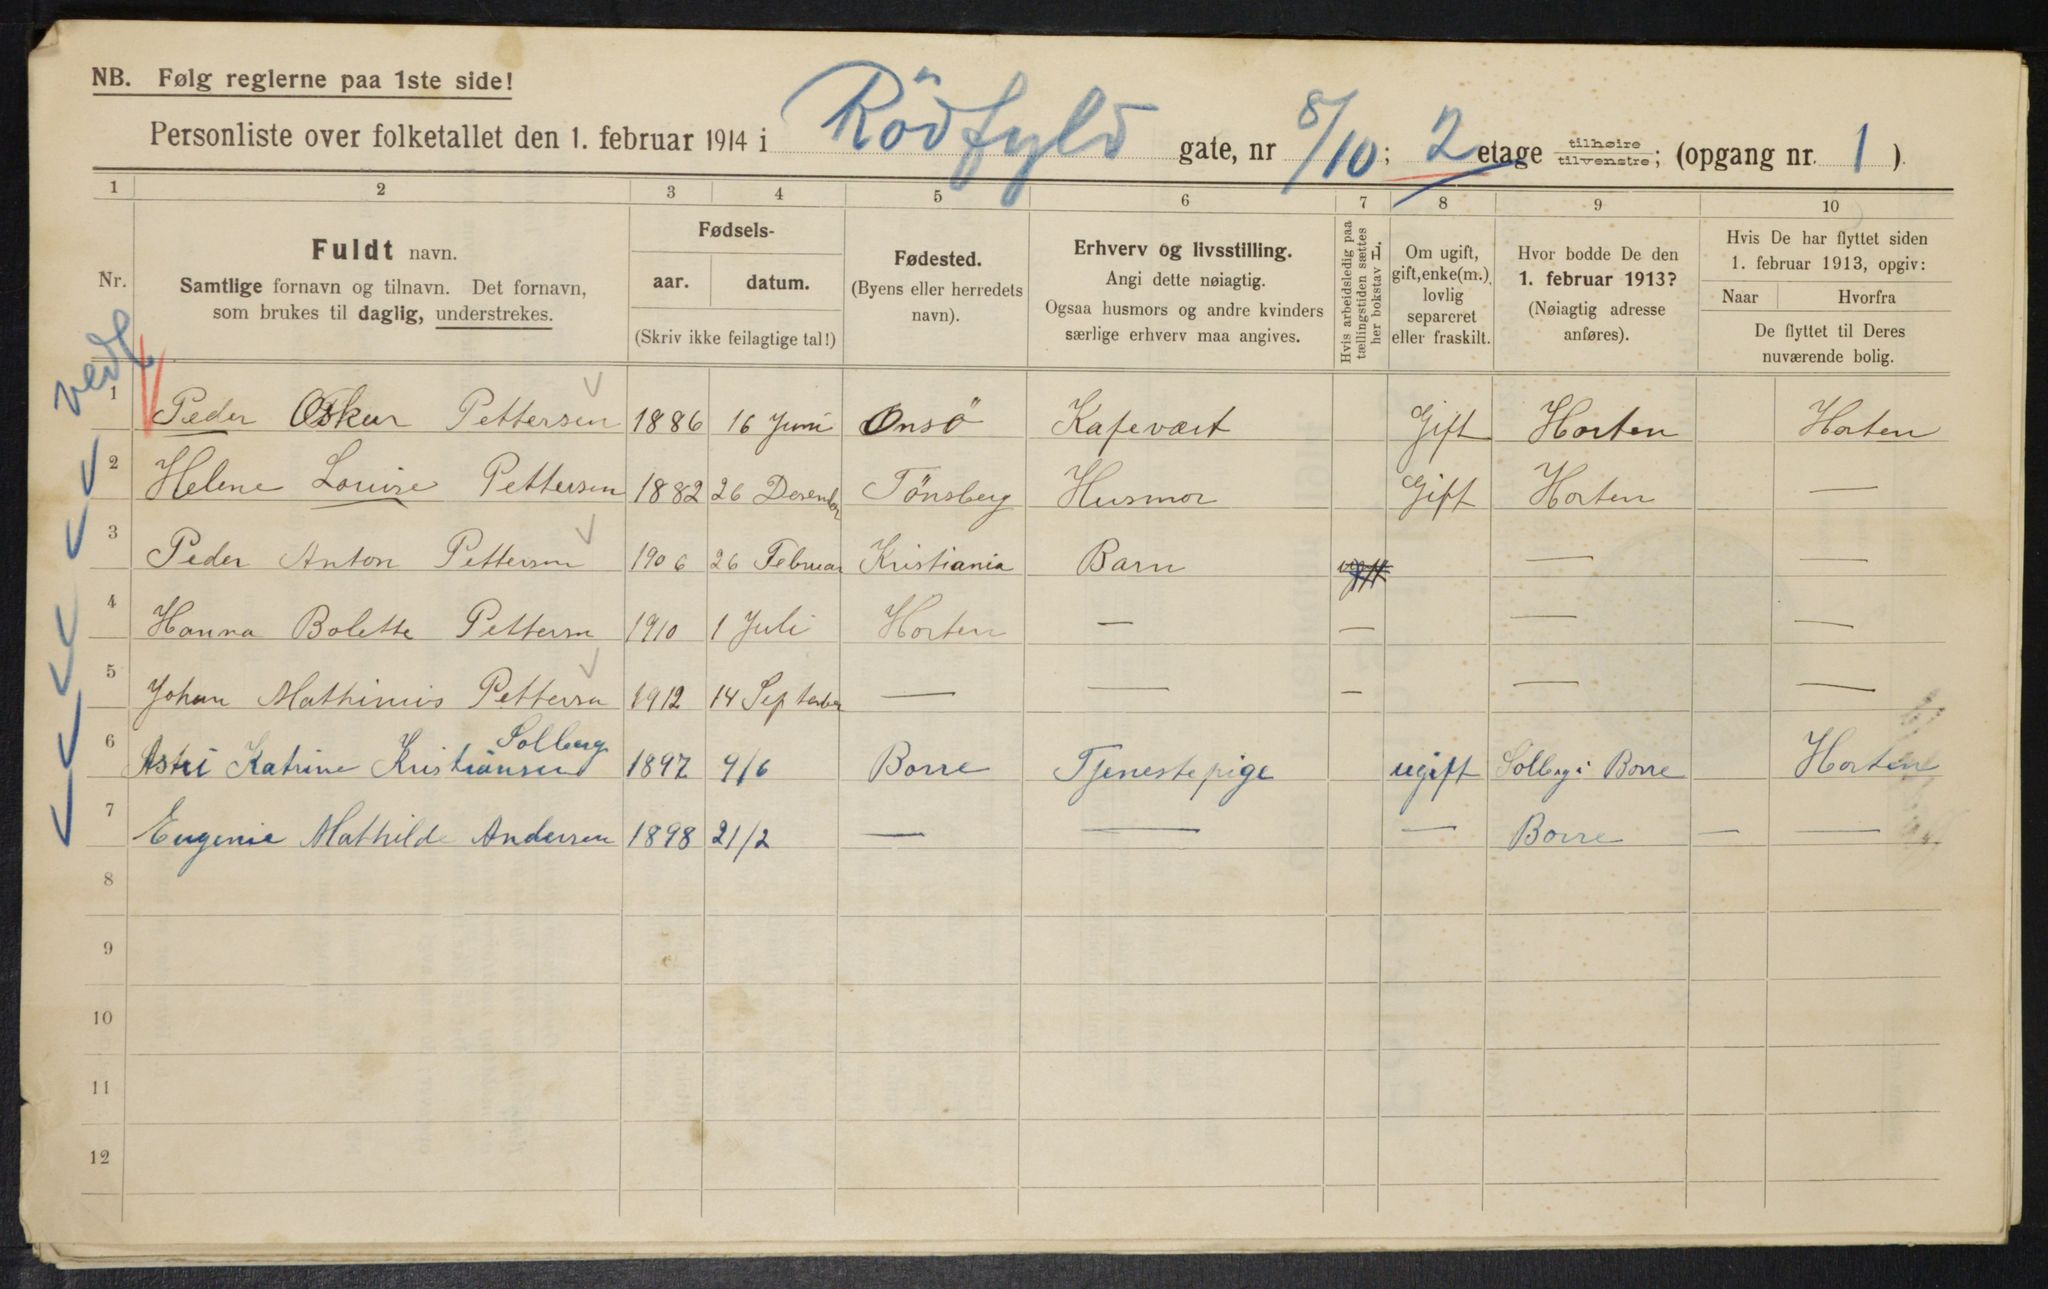 NB. Følg reglerne paa 1ste side!
Personliste over folketallet den 1. februar 1914 i Rödfyld gate, nr 8/10; 2 etage tilhøire tilvenstre; (opgang nr. 1)
1 2 3 4 5 6 7 8 9 10
Nr.
Fuldt navn.
Samtlige fornavn og tilnavn. Det fornavn,
som brukes til daglig, understrekes.
Fødsels-
aar. datum.
(Skriv ikke feilagtige tal!)
Fødested.
(Byens eller herredets
navn).
Erhverv og livsstilling.
Angi dette nøiagtig.
Ogsaa husmors og andre kvinders
særlige erhverv maa angives.
Hvis arbeidsledig paa
tællingstiden sættes
her bokstav L.
Om ugift,
gift, enke(m.),
lovlig
separeret
eller fraskilt.
Hvor bodde De den
1. februar 1913?
(Nøiagtig adresse
anføres).
Hvis De har flyttet siden
1. februar 1913, opgiv:
Naar Hvorfra
De flyttet til Deres
nuværende bolig.
1 Peder Oskar Pettersen 1886 16 Juni Onsö Kafevært Gift Horten Horten
2 Helene Louise Pettersen 1882 26 Desember Tönsberg Husmor Gift Horten —
3 Peder Anton Pettersen 1906 26 Februar Kristiania Barn — —
4 Hanna Bolette Pettersn 1910 1 Juli Horten — — — —
5 Johan Mathinius Pettersn 1912 14 September — — — — —
Solberg
6 Astri Katrine Kristiansen 1897 9/6 Borre Tjenestepige ugift Solberg i Borre Horten
7 Eugenie Mathilde Andersen 1898 21/2 — — — Borre — —
8
9
10
11
12